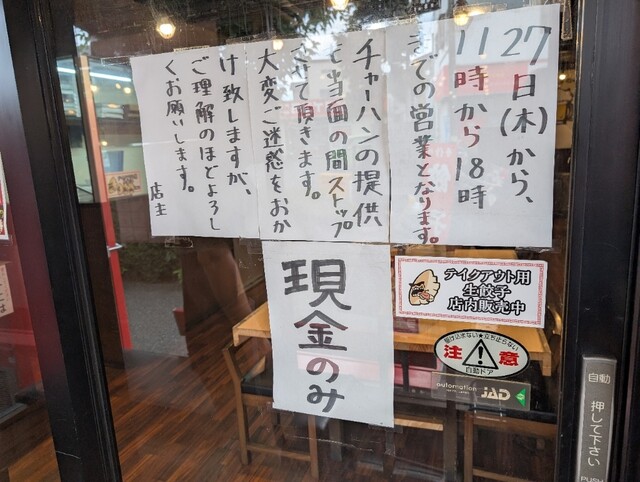 27日(木)から、
11時から18時
までの営業となります。
チャーハンの提供
も当面の間ストップ
させて頂きます。
大変ご迷惑をおか
け致しますが、
ご理解のほどよろし
くお願いします。
店主
現金のみ
テイクアウト用
生餃子
店内販売中
駆け込まない★立ち止らない
注意
自動ドア
automation JAD
自動
押して下さい
PUSH